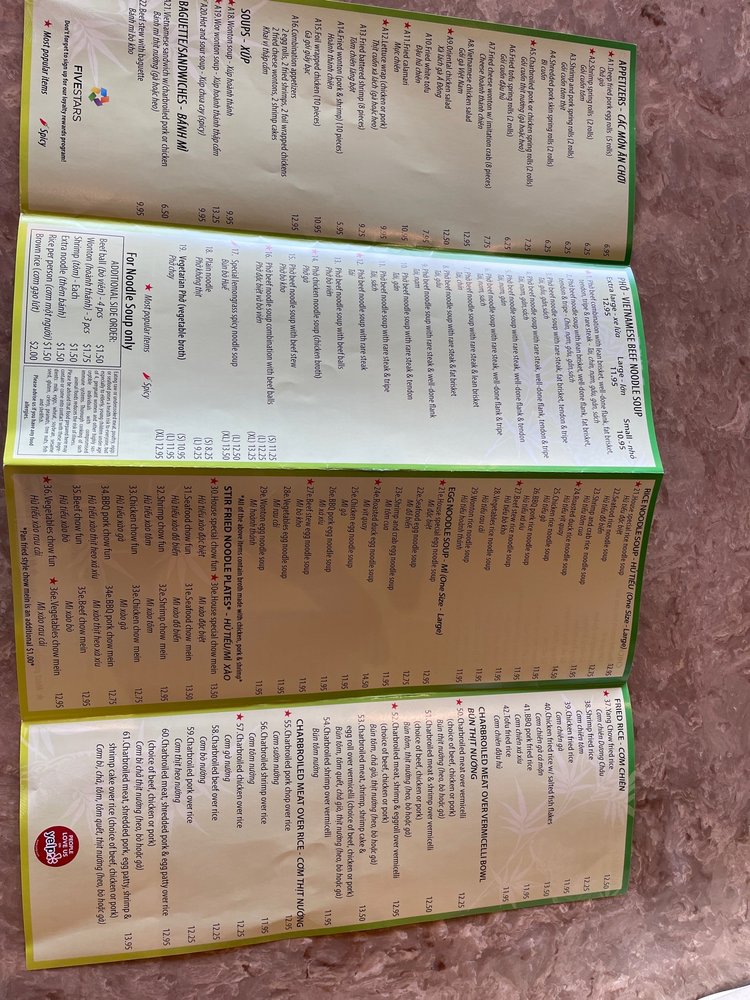 APPETIZERS - CÁC MÓN ĂN CHƠI
★ A1. Deep fried pork egg rolls (5 rolls) 6.95
Chả giò
★ A2. Shrimp spring rolls (2 rolls) 6.25
Gỏi cuốn tôm
A3. Shrimp and pork spring rolls (2 rolls) 6.25
Gỏi cuốn tôm thịt
A4. Shredded pork skin spring rolls (2 rolls) 6.25
Bì cuốn
★ A5. Charbroiled pork or chicken spring rolls (2 rolls) 7.25
Gỏi cuốn thịt nướng (gà hoặc heo)
A6. Fried tofu spring rolls (2 rolls) 6.25
Gỏi cuốn đậu hủ
A7. Fried cheese wonton w/ imitation crab (8 pieces) 7.75
Cheese hoành thánh chiên
A8. Vietnamese chicken salad 12.95
Gỏi gà Việt Nam
★ A9. Oriental chicken salad 12.50
Xà lách gà Á Đông
A10. Fried white tofu 7.95
Đậu hủ chiên
★ A11. Fried calamari 10.95
Mực chiên
★ A12. Lettuce wrap (chicken or pork) 9.95
Thịt cuốn xà lách (gà hoặc heo)
A13. Fried battered shrimp (8 pieces) 9.25
Tôm chiên lăng bột
A14. Fried wonton (pork & shrimp) (10 pieces) 5.95
Hoành thánh chiên
A15. Foil wrapped chicken (10 pieces) 10.95
Gà gói giấy bạc
A16. Combination appetizers 12.95
2 egg rolls, 2 fried shrimps, 2 foil wrapped chickens
2 fried cheese wontons, 2 shrimp cakes
Khai vị thập cẩm
SOUPS - XÚP
★ A18. Wonton soup - Xúp hoành thánh 9.95
★ A19. Wor wonton soup - Xúp hoành thánh thập cẩm 13.25
A20. Hot and sour soup - Xúp chua cay (spicy) 9.95
BAGUETTE/SANDWICHES - BÁNH MÌ
A21. Vietnamese sandwich w/charbroiled pork or chicken 6.50
Bánh mì thịt nướng (gà hoặc heo)
22. Beef stew with baguette 9.95
Bánh mì bò kho
FIVESTARS
Don't forget to sign up for our loyalty rewards program!
★ Most popular items Spicy
PHỞ - VIETNAMESE BEEF NOODLE SOUP
Extra large - xe lửa Large - lớn Small - nhỏ
12.95 11.95 10.95
Phở beef combination with lean brisket, well-done flank, fat brisket,
tendon, tripe & rare steak - tái, chín, nạm, gầu, gân, sách
Phở beef noodle soup with lean brisket, well-done flank, fat brisket,
tendon & tripe - chín, nạm, gầu, gân, sách
Phở beef noodle soup with rare steak, fat brisket, tendon & tripe
tái, gầu, gân, sách
Phở beef noodle soup with rare steak, well-done flank, tendon & tripe
tái, nạm, gân, sách
Phở beef noodle soup with rare steak, well-done flank & tendon
tái, nạm, gân
Phở beef noodle soup with rare steak & fat brisket
tái, gầu
Phở beef noodle soup with rare steak & lean brisket
tái, chín
Phở beef noodle soup with rare steak, well-done flank & tripe
tái, nạm, sách
10. Phở beef noodle soup with rare steak & well-done flank
tái, nạm
11. Phở beef noodle soup with rare steak & tripe
tái, sách
12. Phở beef noodle soup with rare steak
tái
13. Phở beef noodle soup with beef balls
Phở bò viên
★ 14. Phở chicken noodle soup (chicken broth)
Phở gà
15. Phở beef noodle soup with beef stew
Phở bò kho
★ 16. Phở beef noodle soup combination with beef balls
Phở đặc biệt và bò viên
17. Special lemongrass spicy noodle soup (S) 11.25
Bún bò huế (L) 12.25
(XL) 13.25
18. Plain noodle (S) 8.25
Phở không thịt (L) 9.25
19. Vegetarian Phở (vegetable broth) (S) 10.95
Phở chay (L) 11.95
(XL) 12.95
★ Most popular items Spicy
For Noodle Soup only
ADDITIONAL SIDE ORDER:
Beef ball (bò viên) - 4 pcs $1.50
Wonton (hoành thánh) - 3 pcs $1.75
Shrimp (tôm) - Each $1.50
Extra noodle (thêm bánh) $1.50
Rice per person (cơm một người) $1.50
Brown rice (cơm gạo lứt) $2.00
Please advise us if you have any food allergies.
RICE NOODLE SOUP - HỦ TIẾU (One Size - Large)
★ 21. House special rice noodle soup
Hủ tiếu đặc biệt
22. Seafood rice noodle soup
Hủ tiếu đồ biển
23. Shrimp and crab rice noodle soup 12.25
Hủ tiếu tôm cua
★ 24. Roasted duck rice noodle soup 14.50
Hủ tiếu vịt quay
25. Chicken rice noodle soup 11.95
Hủ tiếu gà
26. BBQ pork rice noodle soup 11.95
Hủ tiếu xá xíu
★ 27. Beef stew rice noodle soup 11.95
Hủ tiếu bò kho
28. Vegetables rice noodle soup 11.95
Hủ tiếu rau cải
29. Wonton rice noodle soup 11.95
Hủ tiếu hoành thánh
EGG NOODLE SOUP - MÌ (One Size - Large)
★ 21e. House special egg noodle soup 12.95
Mì đặc biệt
22e. Seafood egg noodle soup 12.25
Mì đồ biển
23e. Shrimp and crab egg noodle soup 11.95
Mì tôm cua
★ 24e. Roasted duck egg noodle soup 14.50
Mì vịt quay
25e. Chicken egg noodle soup 11.95
Mì gà
26e. BBQ pork egg noodle soup 11.95
Mì xá xíu
★ 27e. Beef stew egg noodle soup 11.95
Mì bò kho
28e. Vegetables egg noodle soup 11.95
Mì rau cải
29e. Wonton egg noodle soup 11.95
Mì hoành thánh
*All of the above items contain broth made with chicken, pork & shrimp*
STIR FRIED NOODLE PLATES* - HỦ TIẾU/MÌ XÀO
★ 30. House special chow fun ★ 30e. House special chow mein 13.50
Hủ tiếu xào đặc biệt Mì xào đặc biệt
31. Seafood chow fun 31e. Seafood chow mein 13.50
Hủ tiếu xào đồ biển Mì xào đồ biển
32. Shrimp chow fun 32e. Shrimp chow mein 12.95
Hủ tiếu xào tôm Mì xào tôm
33. Chicken chow fun 33e. Chicken chow mein 12.75
Hủ tiếu xào gà Mì xào gà
34. BBQ pork chow fun 34e. BBQ pork chow mein 12.75
Hủ tiếu xào thịt heo xá xíu Mì xào thịt heo xá xíu
35. Beef chow fun 35e. Beef chow mein 12.95
Hủ tiếu xào bò Mì xào bò
★ 36. Vegetables chow fun ★ 36e. Vegetables chow mein 12.95
Hủ tiếu xào rau cải Mì xào rau cải
*Pan fried style chow mein is an additional $1.00*
FRIED RICE - CƠM CHIÊN
★ 37. Yang Chow fried rice 12.50
Cơm chiên Dương Châu
38. Shrimp fried rice 12.25
Cơm chiên tôm
39. Chicken fried rice 11.95
Cơm chiên gà
40. Chicken fried rice w/ salted fish flakes 13.50
Cơm chiên gà cá mặn
41. BBQ pork fried rice 11.95
Cơm chiên xá xíu
42. Tofu fried rice 11.95
Cơm chiên đậu hủ
CHARBROILED MEAT OVER VERMICELLI BOWL
BÚN THỊT NƯỚNG
★ 50. Charbroiled meat over vermicelli 12.25
(choice of beef, chicken or pork)
Bún thịt nướng (heo, bò hoặc gà)
51. Charbroiled meat & shrimp over vermicelli 12.50
(choice of beef, chicken or pork)
Bún tôm, thịt nướng (heo, bò hoặc gà)
★ 52. Charbroiled meat, shrimp & eggroll over vermicelli 12.95
(choice of beef, chicken or pork)
Bún tôm, chả giò, thịt nướng (heo, bò hoặc gà)
53. Charbroiled meat, shrimp, shrimp cake & 13.50
egg roll over vermicelli (choice of beef, chicken or pork)
Bún tôm, tàm quết, chả giò, thịt nướng (heo, bò hoặc gà)
54. Charbroiled shrimp over vermicelli 11.95
Bún tôm nướng
CHARBROILED MEAT OVER RICE - CƠM THỊT NƯỚNG
★ 55. Charbroiled pork chop over rice 12.95
Cơm sườn nướng
56. Charbroiled shrimp over rice 11.95
Cơm tôm nướng
★ 57. Charbroiled chicken over rice 12.25
Cơm gà nướng
58. Charbroiled beef over rice 12.25
Cơm bò nướng
59. Charbroiled pork over rice 12.25
Cơm thịt heo nướng
60. Charbroiled meat, shredded pork & egg patty over rice 12.95
(choice of beef, chicken or pork)
Cơm bì chả thịt nướng (heo, bò hoặc gà)
61. Charbroiled meat, shredded pork, egg patty, shrimp & 13.95
shrimp cake over rice (choice of beef, chicken or pork)
Cơm bì, chả, tôm, tàm quết, thịt nướng (heo, bò hoặc gà)
PEOPLE
LOVE US
ON
yelp